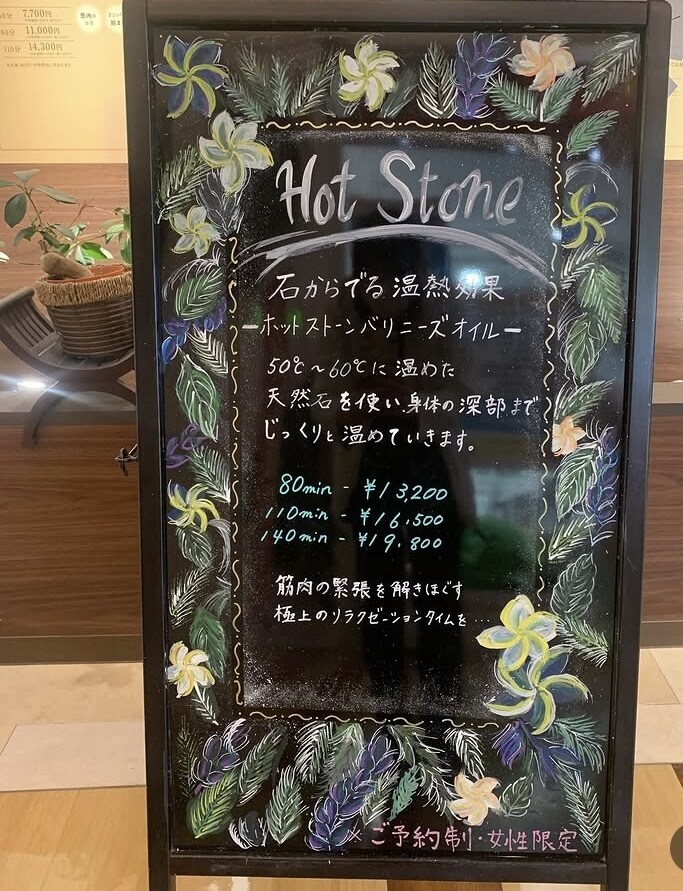 7,700円
80分 11,000円
110分 14,300円
Hot Stone
石からでる温熱効果
ーホットストーンバリニーズオイルー
50℃～60℃に温めた
天然石を使い身体の深部まで
じっくりと温めていきます。
80min - ¥13,200
110min - ¥16.500
140min - ¥19.800
筋肉の緊張を解きほぐす
極上のリラクゼーションタイムを…
※ご予約制・女性限定